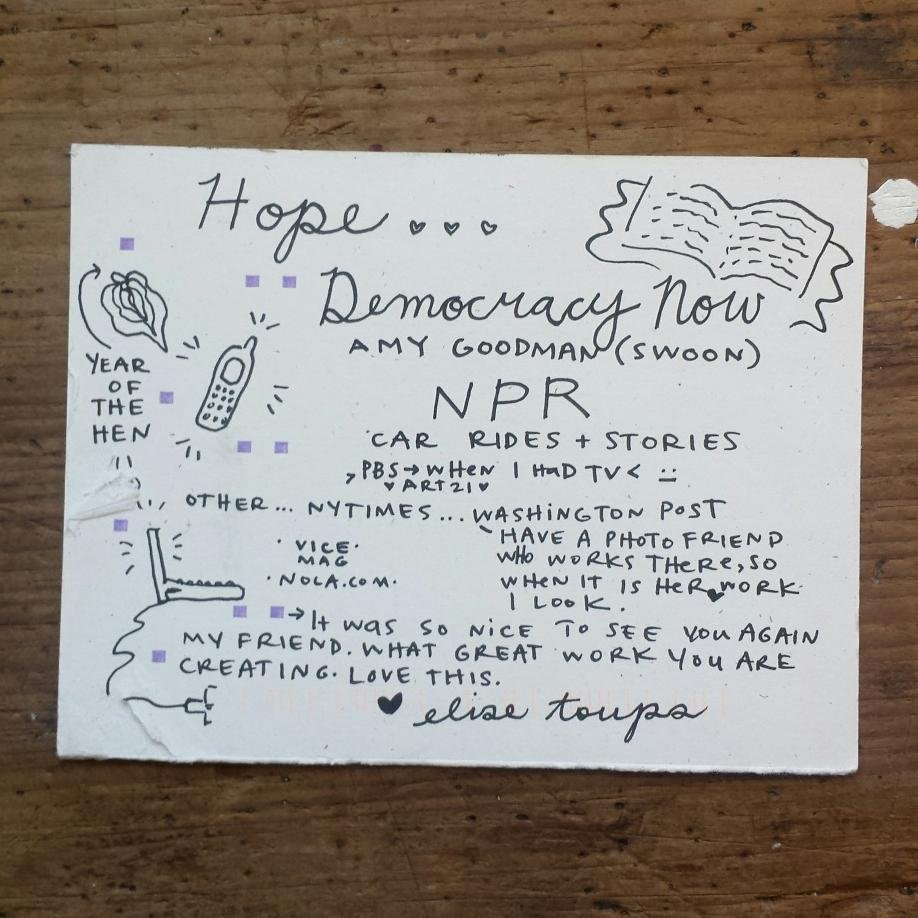 Hope...
Democracy Now
AMY GOODMAN (SWOON)
YEAR
OF
THE
HEN
NPR
CAR RIDES + STORIES
PBS→ WHEN I HAD TV< :(
♥ART21♥
OTHER... NYTIMES... WASHINGTON POST
HAVE A PHOTO FRIEND
WHO WORKS THERE, SO
WHEN IT IS HER WORK
I LOOK.
· VICE·
MAG
·NOLA.COM.
→ IT WAS SO NICE TO SEE YOU AGAIN
MY FRIEND. WHAT GREAT WORK YOU ARE
CREATING. LOVE THIS.
♥ elise toups